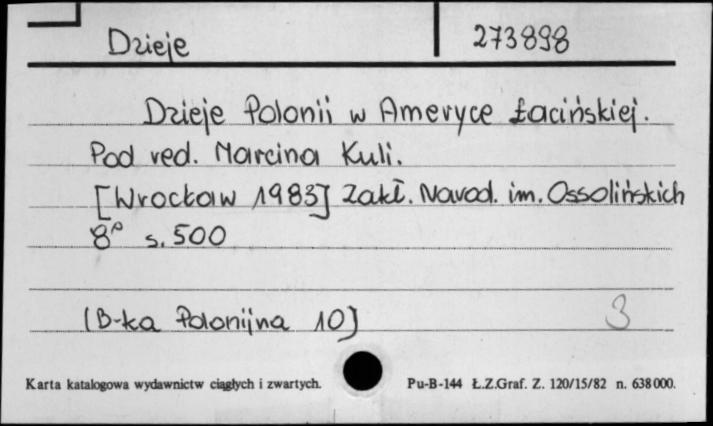 Dzieje 273898
Dzieje Polonii w Ameryce Łacińskiej.
Pod red. Marcina Kuli.
[Wrocław 1983] Zakł. Narod. im. Ossolińskich
8° s. 500
(B-ka Polonijna 10)
3
Karta katalogowa wydawnictw ciągłych i zwartych. Pu-B-144 Ł.Z.Graf. Z. 120/15/82 n. 638000.